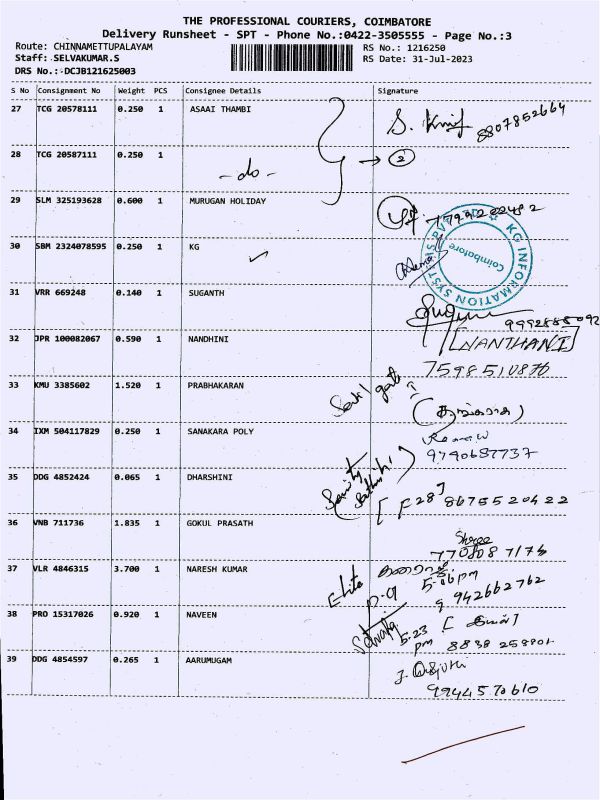 THE PROFESSIONAL COURIERS, COIMBATORE
Delivery Runsheet - SPT - Phone No.:0422-3505555 - Page No.:3
Route: CHINNAMETTUPALAYAM
RS No.: 1216250
Staff: SELVAKUMAR.S
RS Date: 31-Jul-2023
DRS No.: DCJB121625003
S No Consignment No Weight PCS Consignee Details Signature
27 TCG 20578111 0.250 1 ASAAI THAMBI
8807852664
28 TCG 20587111 0.250 1
- do - → 2
29 SLM 325193628 0.600 1 MURUGAN HOLIDAY
30 SBM 2324078595 0.250 1 KG
KG INFORMATION SYSTEMS
Coimbatore
31 VRR 669248 0.140 1 SUGANTH
9992885092
32 JPR 100082067 0.590 1 NANDHINI [NANTHANI]
7598510876
33 KMU 3385602 1.520 1 PRABHAKARAN
34 IXM 504117829 0.250 1 SANAKARA POLY
9790687737
35 DDG 4852424 0.065 1 DHARSHINI
Security
[F28] 8675520422
36 VNB 711736 1.835 1 GOKUL PRASATH
Shree
37 VLR 4846315 3.700 1 NARESH KUMAR
Elite
P-9
942662762
38 PRO 15317026 0.920 1 NAVEEN
5.23
pm
39 DDG 4854597 0.265 1 AARUMUGAM
9944570610